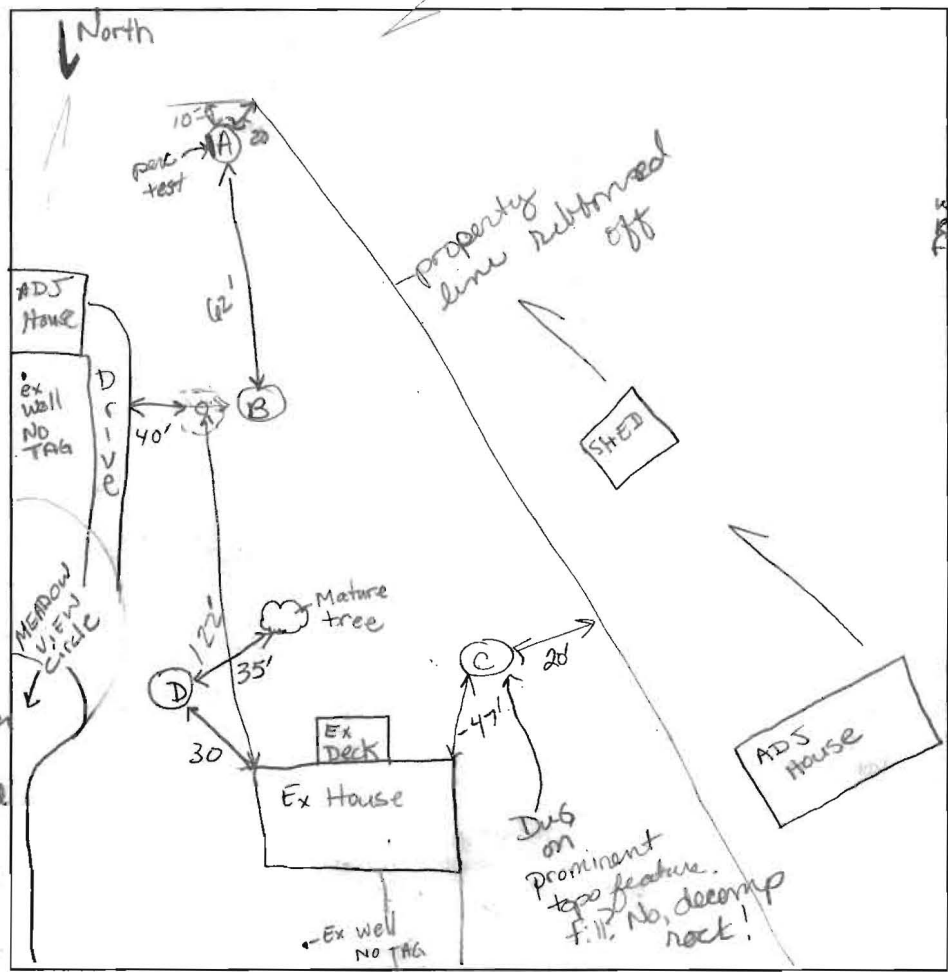 North
10'
20
A
perc
test
property
line ribboned
off
62'
ADJ
House
ex
well
NO
TAG
Drive
40'
B
SHED
MEADOW
VIEW
Circle
122'
Mature
tree
35'
D
30
C
20'
47'
Ex
Deck
Ex House
ADJ
House
Dug
on
prominent
topo feature.
fill? No, decomp
rock!
Ex well
NO TAG